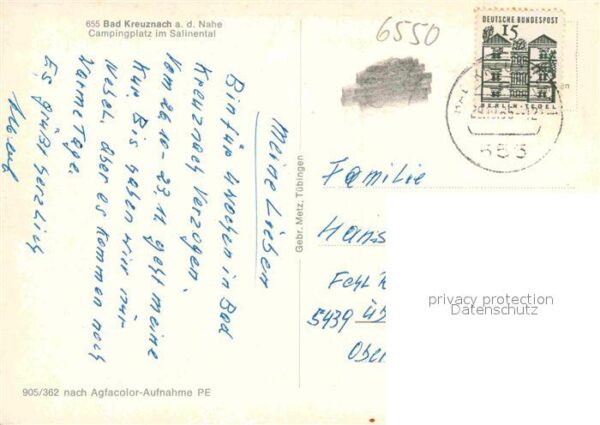 655 Bad Kreuznach a. d. Nahe
Campingplatz im Salinental
6550
DEUTSCHE BUNDESPOST
15
BERLIN-TEGEL
655
Meine Lieben
Bin für 4 Wochen in Bad
Kreuznach verzogen.
Vom 26.10 - 23.11 geht meine
Kur. Bis haben wir nur
Nebel. aber es kommen noch
warme Tage.
Es grüßt herzlich
Gebr. Metz, Tübingen
Familie
Hans
5439
Ober
privacy protection
Datenschutz
905/362 nach Agfacolor-Aufnahme PE